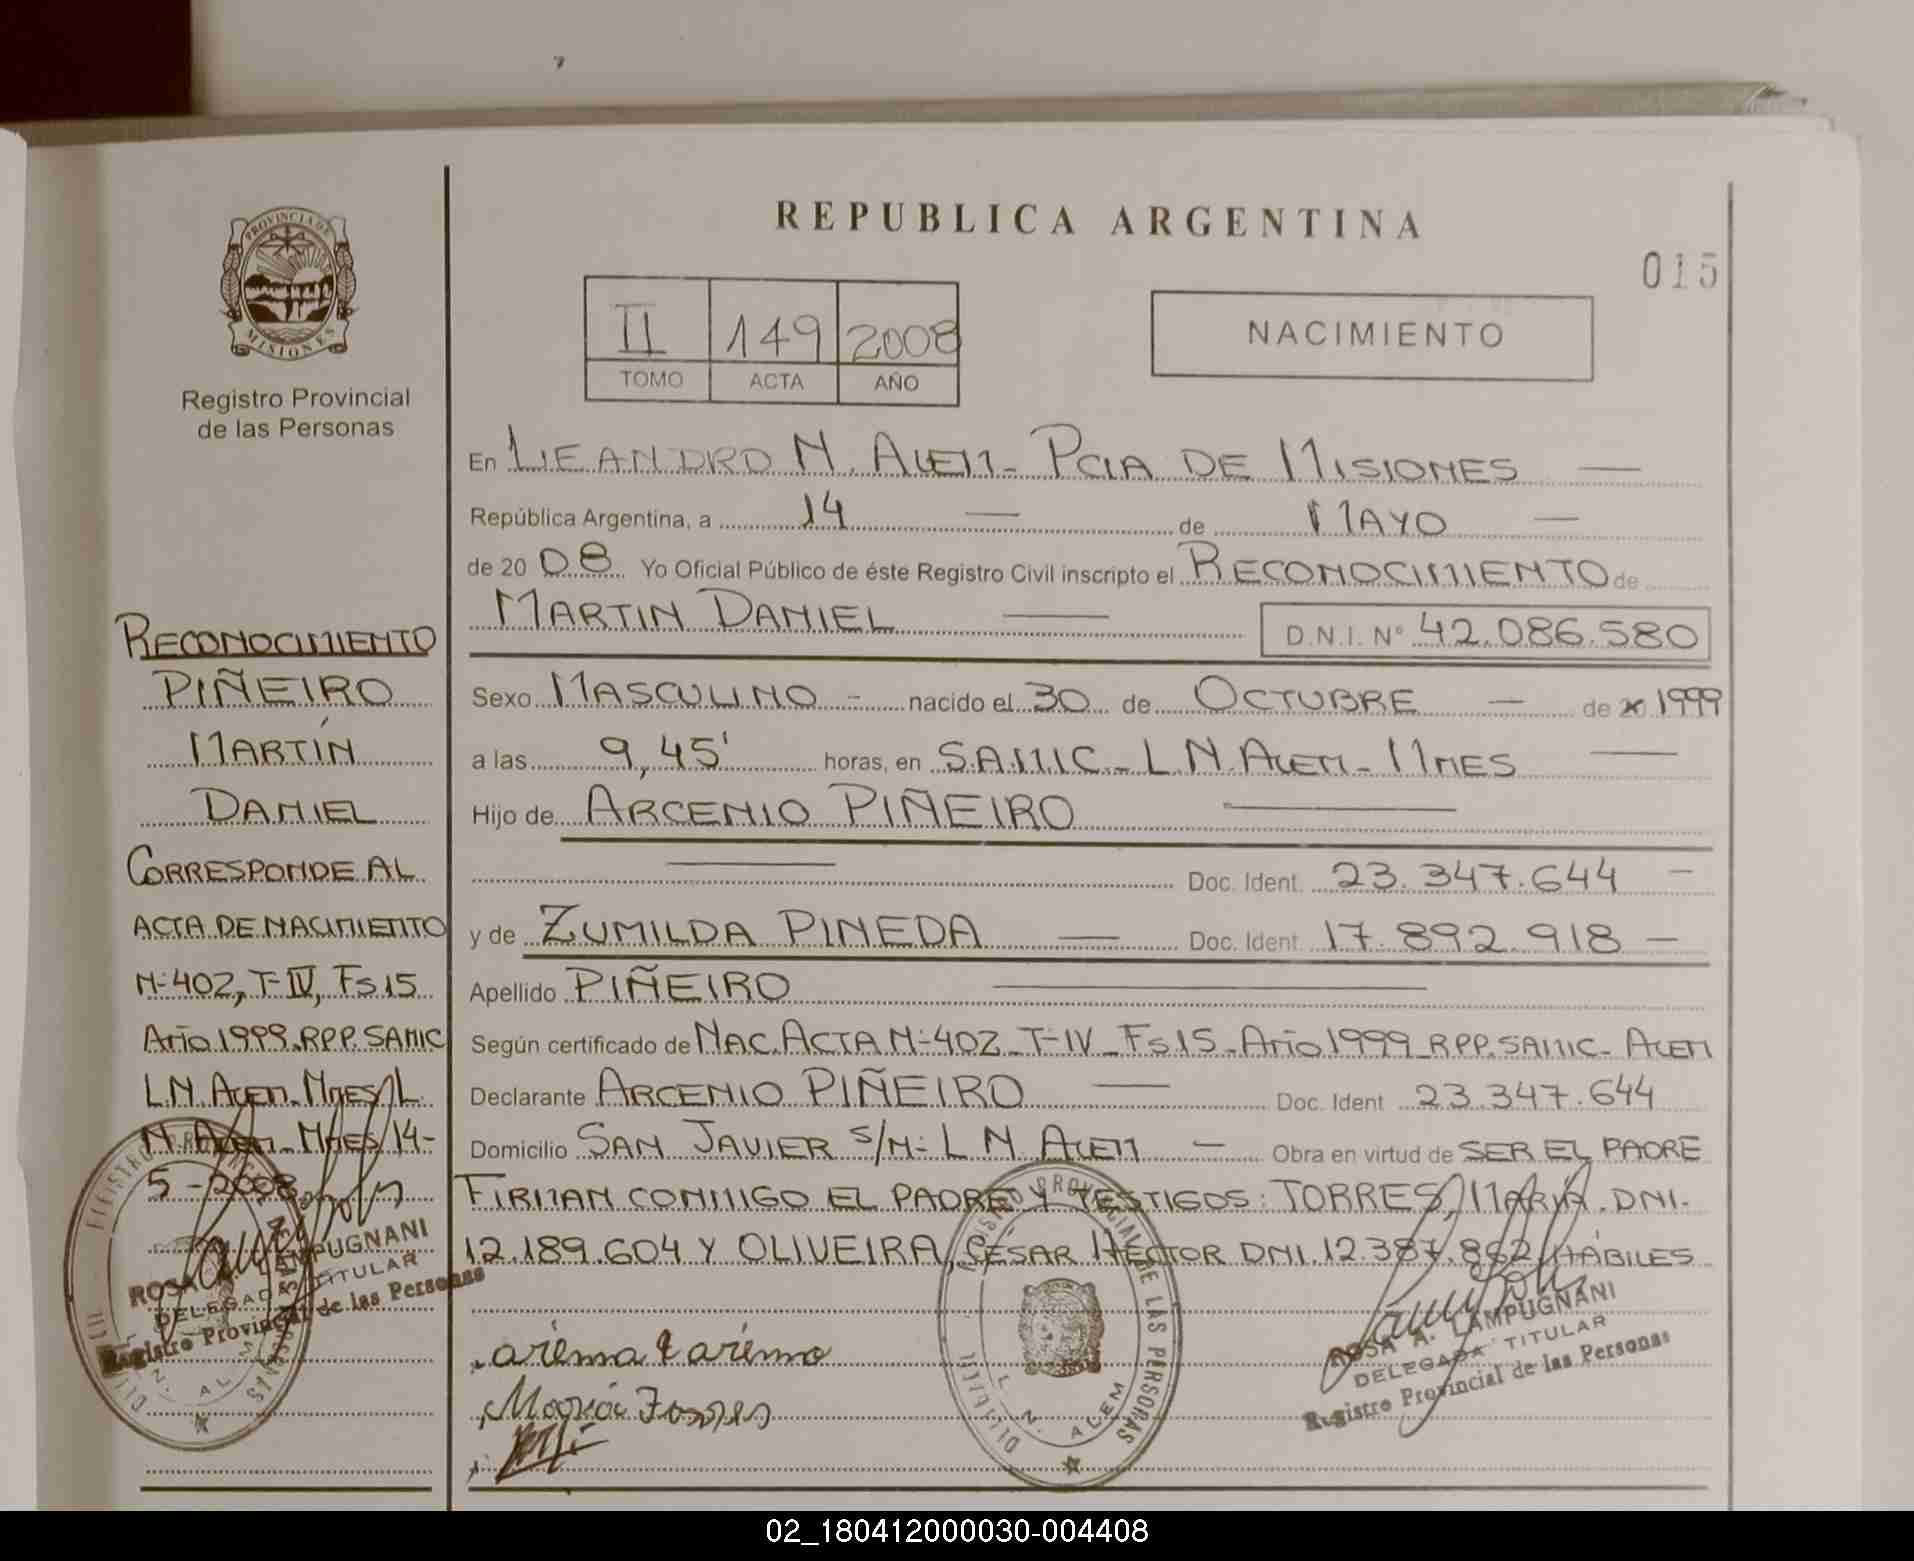 PROVINCIA DE
MISIONES
Registro Provincial
de las Personas
RECONOCIMIENTO
PIÑEIRO
MARTÍN
DANIEL
CORRESPONDE AL
ACTA DE NACIMIENTO
N-402, T-IV, Fs 15
Año 1999. RPP. SAMIC
L.N. ALEM. MNES/L.
N. ALEM. MNES 14-
5-2008
ROSA A. LAMPUGNANI
DELEGADA TITULAR
Registro Provincial de las Personas
REPUBLICA ARGENTINA
015
II 149 2008
TOMO ACTA AÑO
NACIMIENTO
En LEANDRO N. ALEM - PCIA DE MISIONES
República Argentina, a 14 de MAYO
de 20 08 Yo Oficial Público de éste Registro Civil inscripto el RECONOCIMIENTO de
MARTIN DANIEL D.N.I. Nº 42.086.580
Sexo MASCULINO - nacido el 30 de OCTUBRE de 1999
a las 9,45' horas, en S.A.M.I.C. - L.N. ALEM - MNES
Hijo de ARCENIO PIÑEIRO
Doc. Ident. 23.347.644
y de ZUMILDA PINEDA Doc. Ident. 17.892.918
Apellido PIÑEIRO
Según certificado de NAC. ACTA N-402 - T-IV - Fs 15 - Año 1999 - RPP. SAMIC - ALEM
Declarante ARCENIO PIÑEIRO Doc. Ident. 23.347.644
Domicilio SAN JAVIER S/N- L N ALEM Obra en virtud de SER EL PADRE
FIRMAN CONMIGO EL PADRE Y TESTIGOS: TORRES, MARÍA. DNI-
12.189.604 Y OLIVEIRA, CÉSAR HÉCTOR DNI. 12.387.862 HÁBILES
María Torres
REGISTRO PROVINCIAL DE LAS PERSONAS
L. N. ALEM
ROSA A. LAMPUGNANI
DELEGADA TITULAR
Registro Provincial de las Personas
02_180412000030-004408